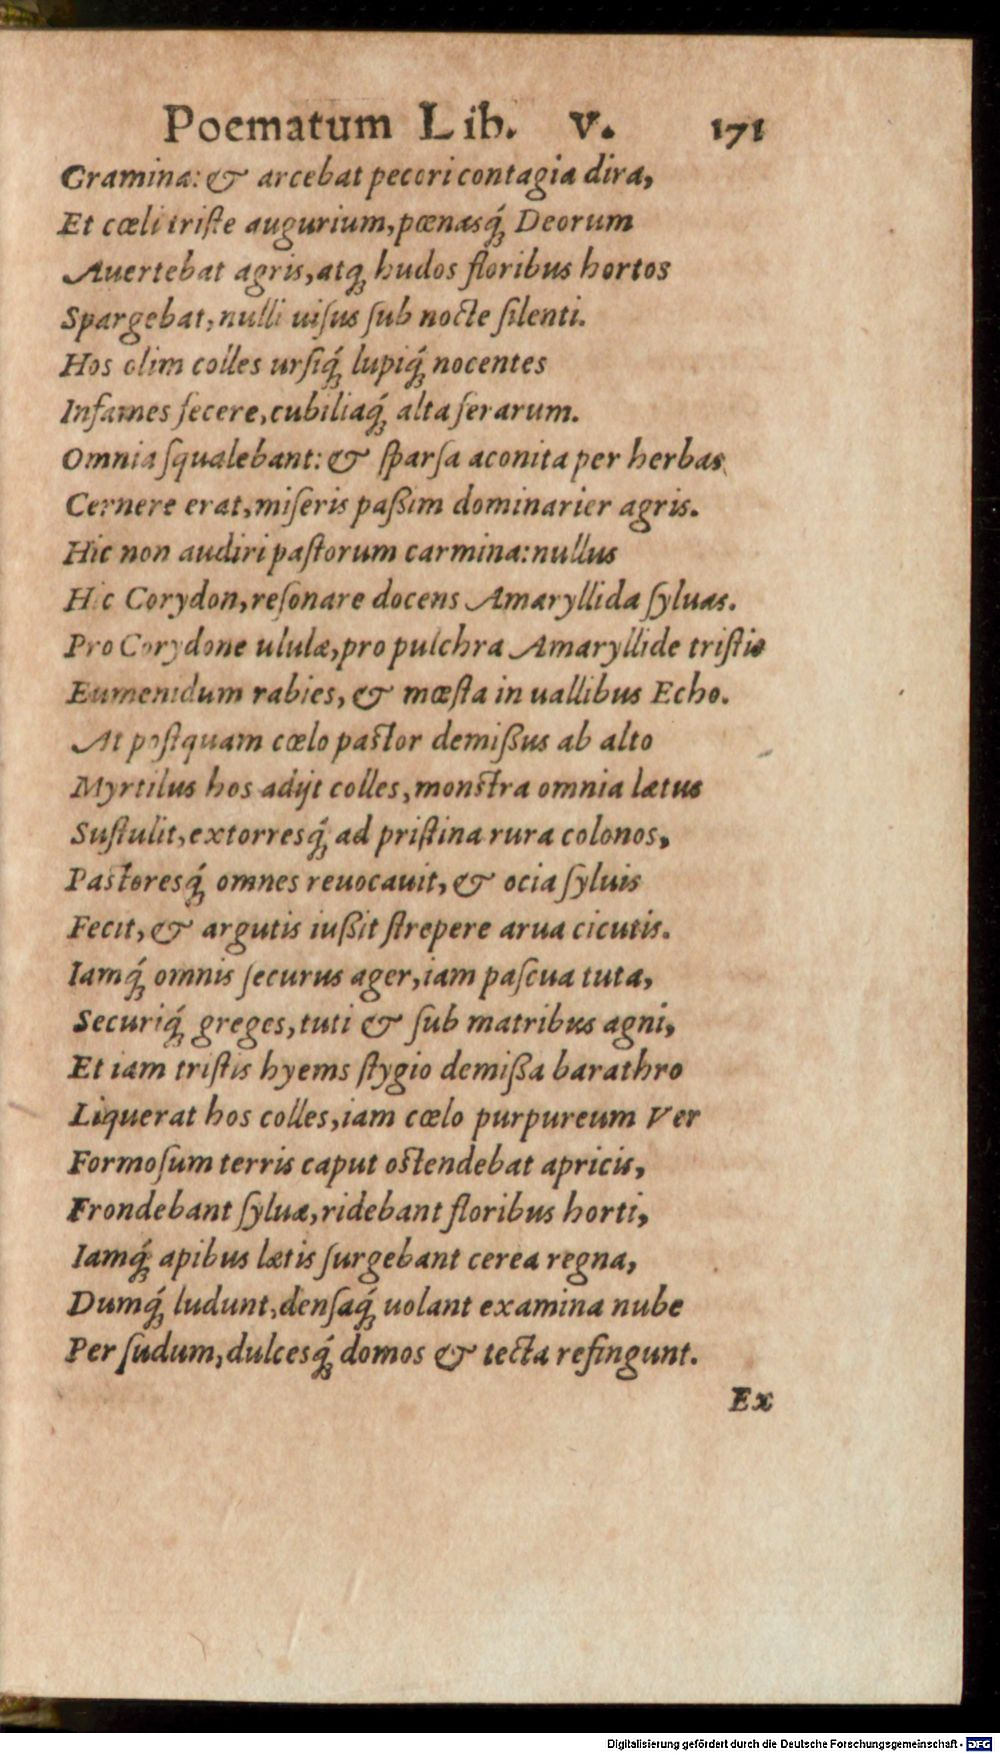 Poematum Lib. V. 171
Gramina: & arcebat pecori contagia dira,
Et cœli triſte augurium, pœnasq́; Deorum
Auertebat agris, atq; hudos floribus hortos
Spargebat, nulli uiſus ſub nocte ſilenti.
Hos olim colles urſiq́; lupiq́; nocentes
Infames fecere, cubiliaq́; alta ferarum.
Omnia ſqualebant: & ſparſa aconita per herbas
Cernere erat, miſeris paßim dominarier agris.
Hic non audiri paſtorum carmina: nullus
Hic Corydon, reſonare docens Amaryllida ſyluas.
Pro Corydone ululæ, pro pulchra Amaryllide triſtis
Eumenidum rabies, & mœſta in uallibus Echo.
At poſtquam cœlo paſtor demißus ab alto
Myrtilus hos adijt colles, monſtra omnia lætus
Suſtulit, extorresq́; ad priſtina rura colonos,
Paſtoresq́; omnes reuocauit, & ocia ſyluis
Fecit, & argutis iußit ſtrepere arua cicutis.
Iamq́; omnis ſecurus ager, iam paſcua tuta,
Securiq́; greges, tuti & ſub matribus agni,
Et iam triſtis hyems ſtygio demißa barathro
Liquerat hos colles, iam cœlo purpureum Ver
Formoſum terris caput oſtendebat apricis,
Frondebant ſyluæ, ridebant floribus horti,
Iamq́; apibus lætis ſurgebant cerea regna,
Dumq́; ludunt, denſaq́; uolant examina nube
Per ſudum, dulcesq́; domos & tecta refingunt.
Ex
Digitalisierung gefördert durch die Deutsche Forschungsgemeinschaft - DFG